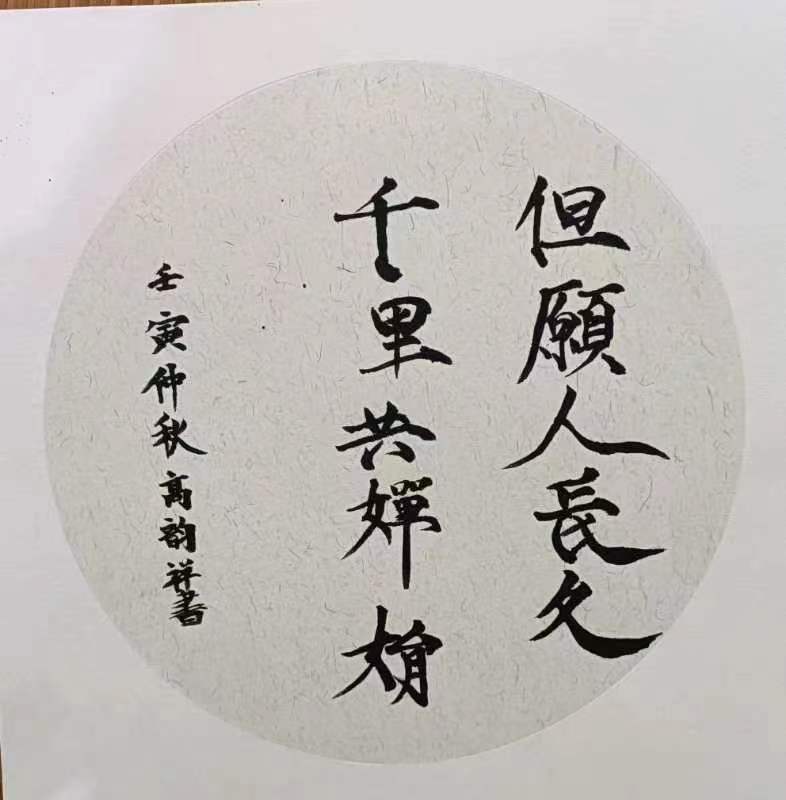 但願人長久
千里共嬋娟
壬寅仲秋高韵祥書